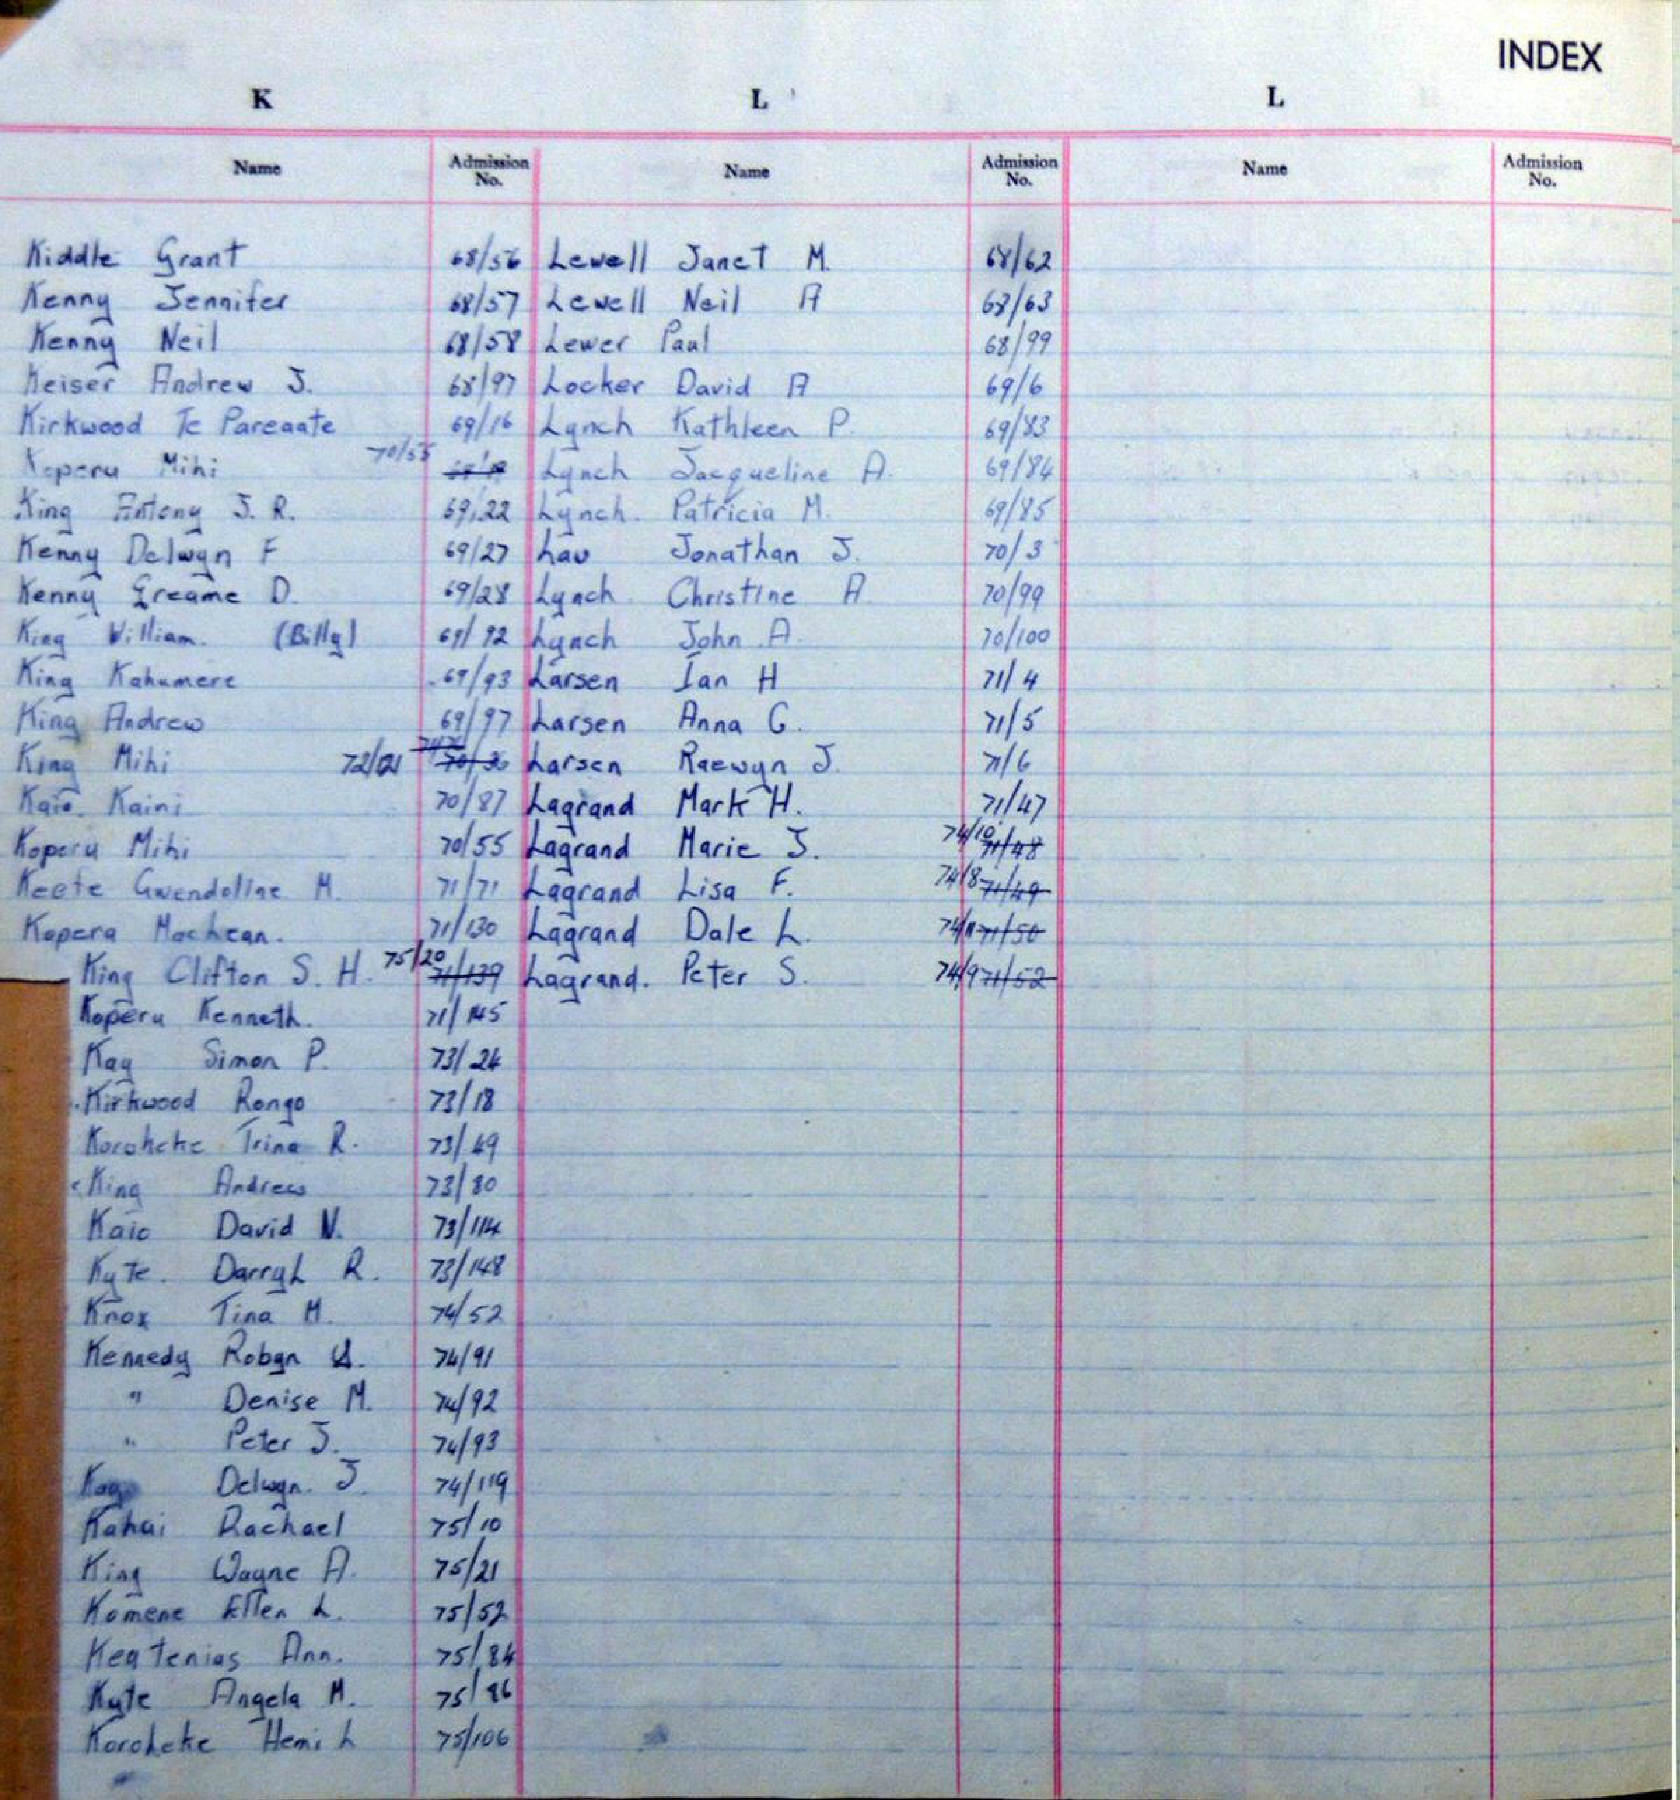 INDEX
K L L
Name Admission No. Name Admission No. Name Admission No.
Kiddle Grant 68/56 Lewell Janet M. 68/62
Kenny Jennifer 68/57 Lewell Neil A 68/63
Kenny Neil 68/58 Lewer Paul 68/99
Keiser Andrew J. 68/97 Locker David A 69/6
Kirkwood Te Pareaate 69/16 Lynch Kathleen P. 69/83
Koperu Mihi 70/55 Lynch Jacqueline A. 69/84
King Antony J. R. 69/22 Lynch. Patricia M. 69/85
Kenny Delwyn F 69/27 Lau Jonathan J. 70/3
Kenny Greame D. 69/28 Lynch Christine A. 70/99
King William. (Billy) 69/92 Lynch John A. 70/100
King Kahumere 69/93 Larsen Ian H 71/4
King Andrew 69/97 Larsen Anna G. 71/5
King Mihi 72/121 70/36 Larsen Raewyn J. 71/6
Kaio. Kaini 70/87 Lagrand Mark H. 71/47
Koperu Mihi 70/55 Lagrand Marie J. 74/10 71/48
Keefe Gwendoline M. 71/71 Lagrand Lisa F. 74/8 71/49
Kopera Maehean. 71/130 Lagrand Dale L. 71/50
King Clifton S. H. 75/20 71/139 Lagrand. Peter S. 74/9 71/52
Koperu Kenneth. 71/145
Kay Simon P. 73/24
Kirkwood Rongo 73/18
Koroheke Trina R. 73/49
King Andrew 73/80
Kaio David N. 73/114
Kyte. Darryl R. 73/148
Knox Tina M. 74/52
Kennedy Robyn 74/91
" Denise M. 74/92
" Peter J. 74/93
Kay Delwyn. J 74/119
Kahai Rachael 75/10
King Wayne A. 75/21
Komene Ellen L. 75/52
Keatenias Ann. 75/84
Kyte Angela M. 75/86
Koroheke Hemi L 75/106